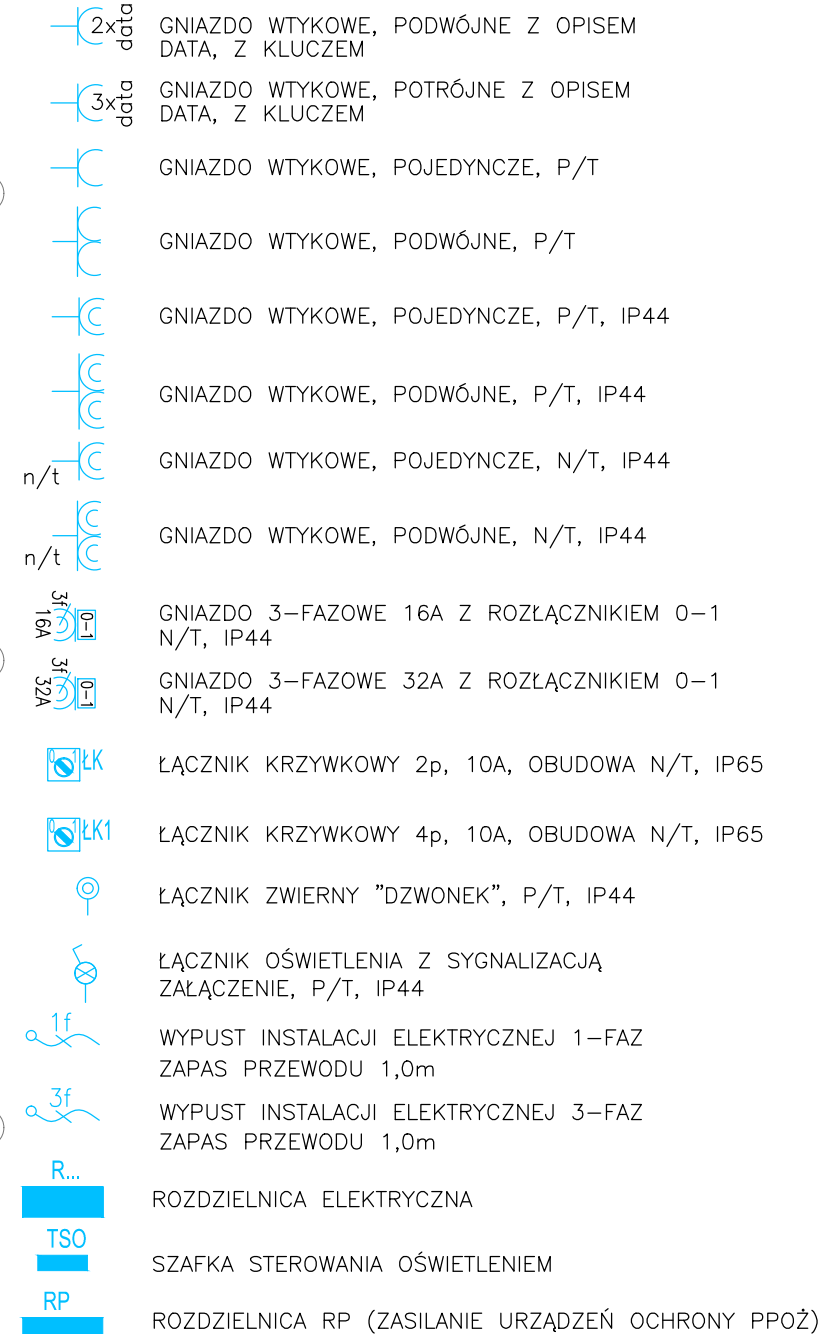 2x data GNIAZDO WTYKOWE, PODWÓJNE Z OPISEM
DATA, Z KLUCZEM
3x data GNIAZDO WTYKOWE, POTRÓJNE Z OPISEM
DATA, Z KLUCZEM
GNIAZDO WTYKOWE, POJEDYNCZE, P/T
GNIAZDO WTYKOWE, PODWÓJNE, P/T
GNIAZDO WTYKOWE, POJEDYNCZE, P/T, IP44
GNIAZDO WTYKOWE, PODWÓJNE, P/T, IP44
n/t GNIAZDO WTYKOWE, POJEDYNCZE, N/T, IP44
n/t GNIAZDO WTYKOWE, PODWÓJNE, N/T, IP44
3f 16A 0-1 GNIAZDO 3-FAZOWE 16A Z ROZŁĄCZNIKIEM 0-1
N/T, IP44
3f 32A 0-1 GNIAZDO 3-FAZOWE 32A Z ROZŁĄCZNIKIEM 0-1
N/T, IP44
0 1 ŁK ŁĄCZNIK KRZYWKOWY 2p, 10A, OBUDOWA N/T, IP65
0 1 ŁK1 ŁĄCZNIK KRZYWKOWY 4p, 10A, OBUDOWA N/T, IP65
ŁĄCZNIK ZWIERNY "DZWONEK", P/T, IP44
ŁĄCZNIK OŚWIETLENIA Z SYGNALIZACJĄ
ZAŁĄCZENIE, P/T, IP44
1f WYPUST INSTALACJI ELEKTRYCZNEJ 1-FAZ
ZAPAS PRZEWODU 1,0m
3f WYPUST INSTALACJI ELEKTRYCZNEJ 3-FAZ
ZAPAS PRZEWODU 1,0m
R...
ROZDZIELNICA ELEKTRYCZNA
TSO
SZAFKA STEROWANIA OŚWIETLENIEM
RP
ROZDZIELNICA RP (ZASILANIE URZĄDZEŃ OCHRONY PPOŻ)